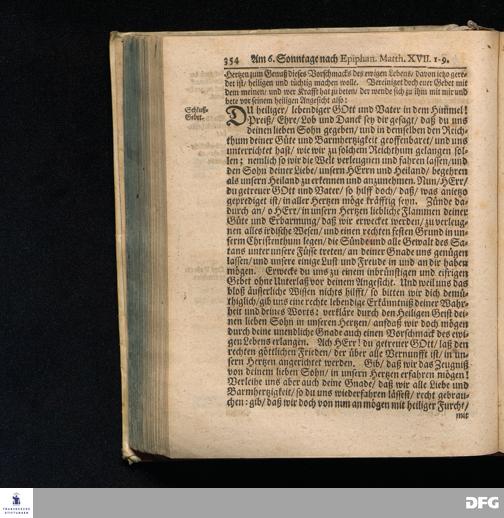 354 Am 6. Sonntage nach Epiphan. Matth. XVII. 1-9.
Hertzen zum Genuß dieses Vorschmacks des ewigen Lebens / davon ietzo geredet ist / heiligen und tüchtig machen wolle. Vereiniget doch euer Gebet mit
dem meinen / und wer Krafft hat zu beten / der wende sich zu ihm mit mir und
bete vor seinem heiligen Angesicht also:
Schluß-
Gebet.
DU heiliger / lebendiger GOtt und Vater in dem Himmel!
Preiß / Ehre / Lob und Danck sey dir gesagt / daß du uns
deinen lieben Sohn gegeben / und in demselben den Reich-
thum deiner Güte und Barmhertzigkeit geoffenbaret / und uns
unterrichtet hast / wie wir zu solchem Reichthum gelangen sol-
len; nemlich so wir die Welt verleugnen und fahren lassen / und
den Sohn deiner Liebe / unsern HErrn und Heiland / begehren
als unsern Heiland zu erkennen und anzunehmen. Nun / HErr /
du getreuer GOtt und Vater / so hilff doch / daß / was anietzo
geprediget ist / in aller Hertzen möge kräfftig seyn. Zünde da-
durch an / o HErr / in unsern Hertzen liebliche Flammen deiner
Güte und Erbarmung / daß wir erwecket werden / zu verleug-
nen alles irdische Wesen / und einen rechten festen Grund in un-
serm Christenthum legen / die Sünde und alle Gewalt des Sa-
tans unter unsere Füsse treten / an deiner Gnade uns genügen
lassen / und unsere einige Lust und Freude in und an dir haben
mögen. Erwecke du uns zu einem inbrünstigen und eifrigen
Gebet ohne Unterlaß vor deinem Angesicht. Und weil uns das
bloß äusserliche Wissen nichts hilfft / so bitten wir dich demü-
thiglich / gib uns eine rechte lebendige Erkänntniß deiner Wahr-
heit und deines Worts: verkläre durch den Heiligen Geist dei-
nen lieben Sohn in unseren Hertzen / aufdaß wir doch mögen
durch deine unendliche Gnade auch einen Vorschmack des ewi-
gen Lebens erlangen. Ach HErr! du getreuer GOtt / laß den
rechten göttlichen Frieden / der über alle Vernunfft ist / in un-
sern Hertzen angerichtet werden. Gib / daß wir das Zeugniß
von deinem lieben Sohn / in unsern Hertzen erfahren mögen!
Verleihe uns aber auch deine Gnade / daß wir alle Liebe und
Barmhertzigkeit / so du uns wiederfahren lässest / recht gebrau-
chen: gib / daß wir doch von nun an mögen mit heiliger Furcht /
mit
FRANCKESCHE
STIFTUNGEN
DFG